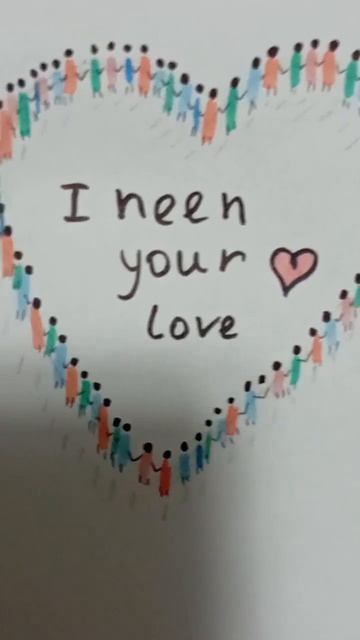 I neen
your
love